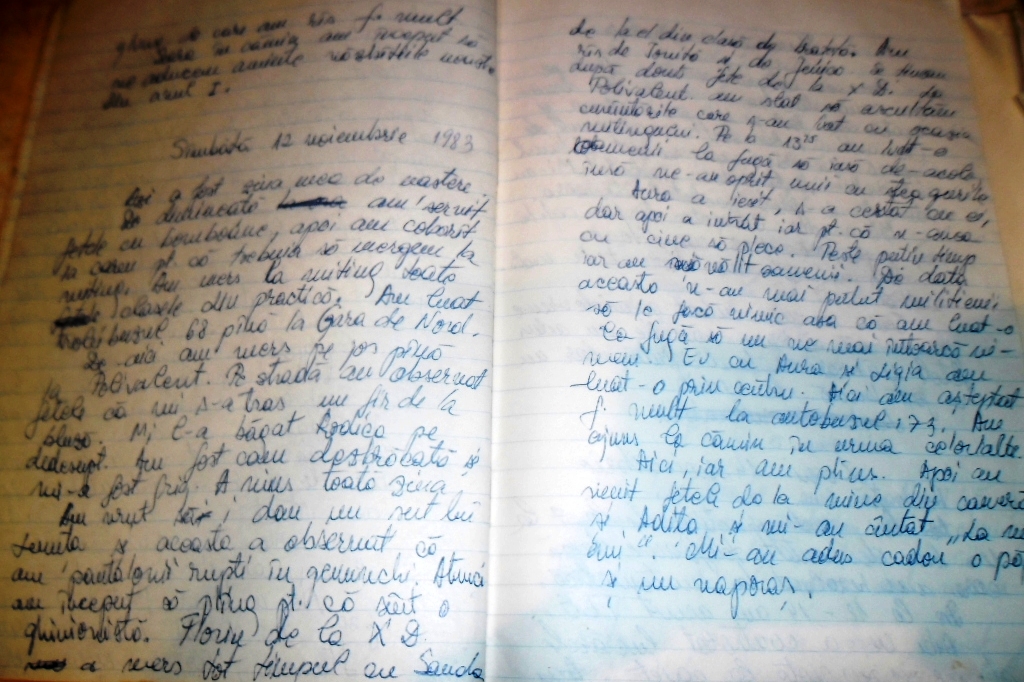 glume de care am rîs f. mult
Seara în cămin am început să
ne aducem aminte năzbîtiile noastre
din anul I.
Sîmbătă 12 noiembrie 1983
Azi a fost ziua mea de naștere.
De dimineață am servit
fetele cu bomboane, apoi am coborît
la careu pt. că trebuia să mergem la
miting. Am mers la miting toate
clasele din practică. Am luat
troleibuzul 68 pînă la Gara de Nord.
De-aici am mers pe jos pînă
la Polivalent. Pe stradă au observat
fetele că mi s-a tras un fir de la
bluză. Mi l-a băgat Rodica pe
dedesupt. Am fost cam dezbrăcată și
mi-a fost frig. A mers toată ziua
Am vrut să-i dau un șut lui
Ionița și aceasta a observat că
am pantalonii rupți în genunchi. Atunci
am început să plîng pt. că sînt o
ghinionistă. Florin de la X D
a mers tot timpul cu Sanda
de la el din clasă de braț. Am
rîs de Ionița și de Jenica se țineau
după două fete de la X D. La
Polivalent am stat să ascultăm
cuvîntările care s-au ținut cu ocazia
mitingului. Pe la 13²⁵ au luat-o
oamenii la fugă să iasă de-acolo
însă ne-au oprit unii cu steagurile
Aura a ieșit, s-a certat cu ei,
dar apoi a intrat iar pt. că n-avea
cu cine să plece. Peste puțin timp
iar au năvălit oamenii. De data
aceasta n-au mai putut milițienii
să le facă nimic așa că am luat-o
la fugă să nu ne mai întoarcă ni-
meni. Eu cu Aura și Ligia am
luat-o prin centru. Aici am așteptat
f. mult la autobuzul 173. Am
ajuns la cămin în urma celorlalte.
Aici, iar am plîns. Apoi au
venit fetele de la mine din cameră
și Adița și mi-au cîntat „La mulți
ani". Mi-au adus cadou o
și un naporaș.